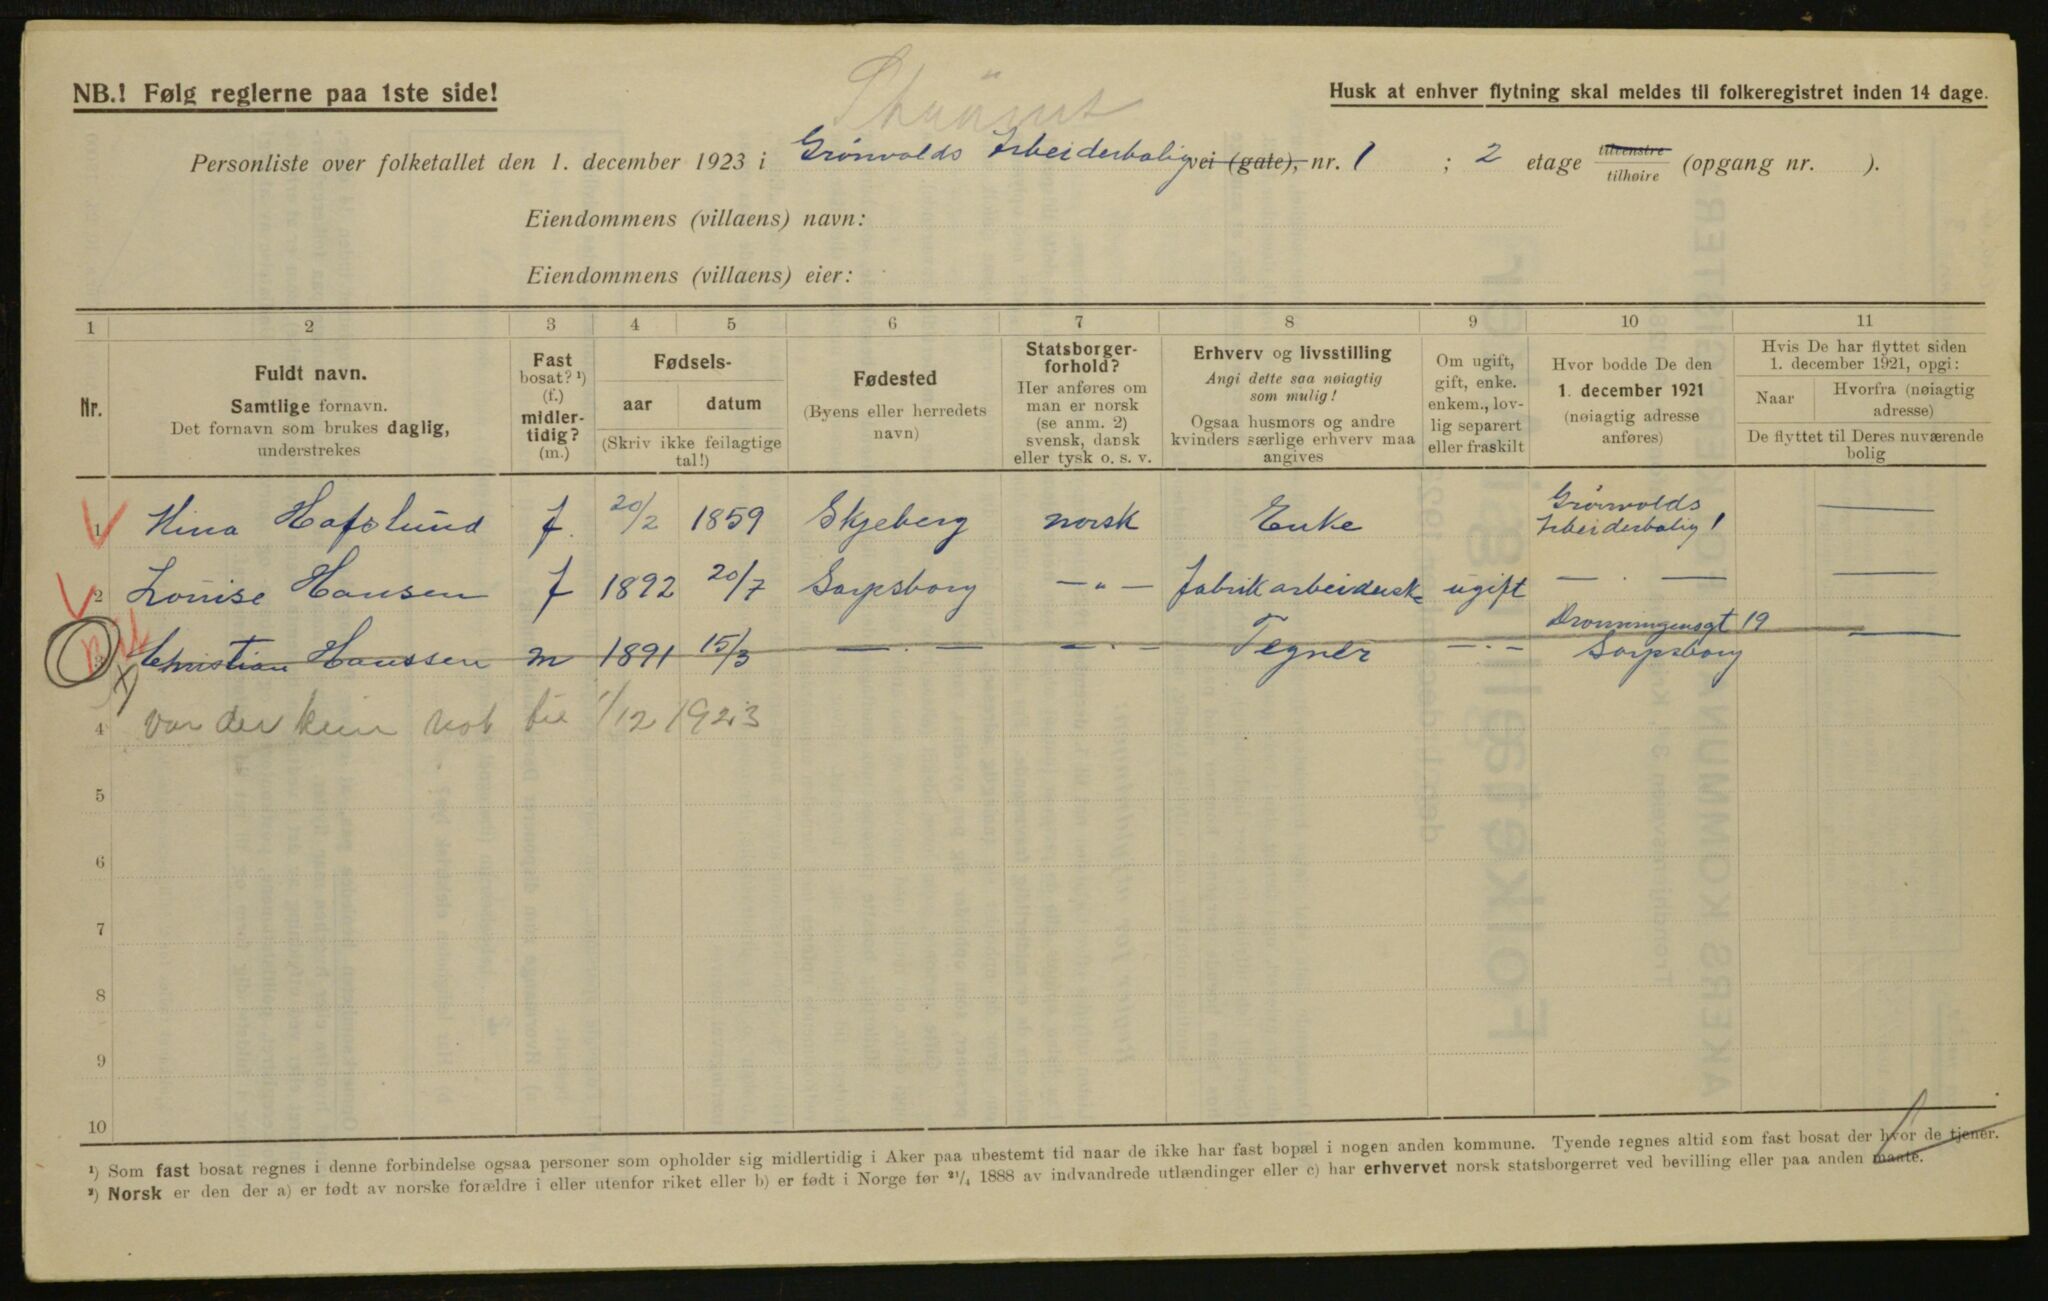 NB.! Følg reglerne paa 1ste side!
Husk at enhver flytning skal meldes til folkeregistret inden 14 dage.
Personliste over folketallet den 1. december 1923 i Grönvolds Arbeiderbolig vei (gate), nr. 1 ; 2 etage tilvenstre tilhøire (opgang nr. ).
Eiendommens (villaens) navn:
Eiendommens (villaens) eier:
1 2 3 4 5 6 7 8 9 10 11
Nr.
Fuldt navn.
Samtlige fornavn.
Det fornavn som brukes daglig,
understrekes
Fast
bosat? ¹)
(f.)
midler-
tidig?
(m.)
Fødsels-
aar datum
(Skriv ikke feilagtige
tal!)
Fødested
(Byens eller herredets
navn)
Statsborger-
forhold?
Her anføres om
man er norsk
(se anm. 2)
svensk, dansk
eller tysk o. s. v.
Erhverv og livsstilling
Angi dette saa nøiagtig
som mulig!
Ogsaa husmors og andre
kvinders særlige erhverv maa
angives
Om ugift,
gift, enke.
enkem., lov-
lig separert
eller fraskilt
Hvor bodde De den
1. december 1921
(nøiagtig adresse
anføres)
Hvis De har flyttet siden
1. december 1921, opgi:
Naar
Hvorfra (nøiagtig
adresse)
De flyttet til Deres nuværende
bolig
1 Nina Hafslund f. 20/2 1859 Skjeberg norsk Enke Grönvolds Arbeiderbolig 1 —
2 Louise Hansen f 1892 20/7 Sarpsborg — " — fabrikarbeiderske ugift — . — —
3 Christian Hanssen m 1891 15/3 — . — — . — Tegner — . — Dronningensgt 19 Sarpsborg —
4 var der kun nat til 1/12 1923
5
6
7
8
9
10
¹) Som fast bosat regnes i denne forbindelse ogsaa personer som opholder sig midlertidig i Aker paa ubestemt tid naar de ikke har fast bopæl i nogen anden kommune. Tyende regnes altid som fast bosat der hvor de tjener.
²) Norsk er den der a) er født av norske forældre i eller utenfor riket eller b) er født i Norge før ²¹/₄ 1888 av indvandrede utlændinger eller c) har erhvervet norsk statsborgerret ved bevilling eller paa anden maate.